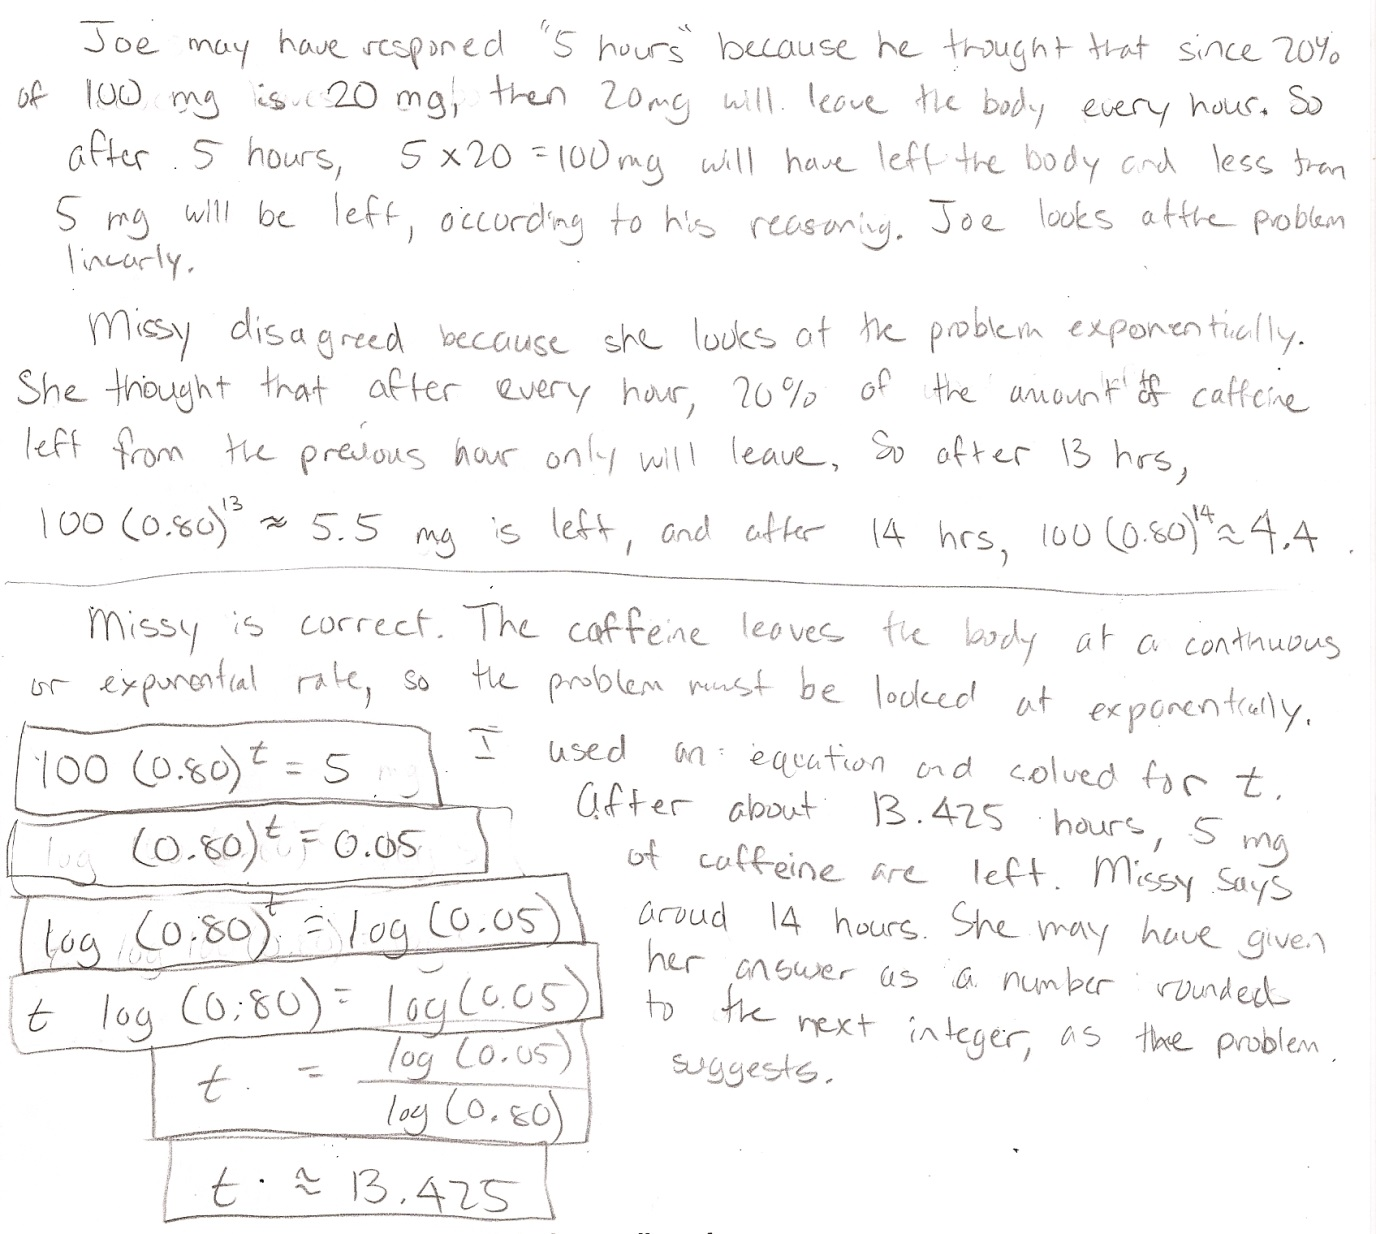 Joe may have responed "5 hours" because he thought that since 20%
of 100 mg is 20 mg, then 20mg will leave the body every hour. So
after 5 hours, 5 x 20 = 100mg will have left the body and less than
5 mg will be left, according to his reasoning. Joe looks at the problem
linearly.
Missy disagreed because she looks at the problem exponentially.
She thought that after every hour, 20% of the amount of caffeine
left from the previous hour only will leave. So after 13 hrs,
100 (0.80)^13 ≈ 5.5 mg is left, and after 14 hrs, 100 (0.80)^14 ≈ 4.4.
Missy is correct. The caffeine leaves the body at a continuous
or exponential rate, so the problem must be looked at exponentially.
I used an equation and solved for t.
After about 13.425 hours, 5 mg
of caffeine are left. Missy says
aroud 14 hours. She may have given
her answer as a number rounded
to the next integer, as the problem
suggests.
100 (0.80)^t = 5
(0.80)^t = 0.05
log (0.80)^t = log (0.05)
t log (0.80) = log (0.05)
t = log (0.05) / log (0.80)
t ≈ 13.425